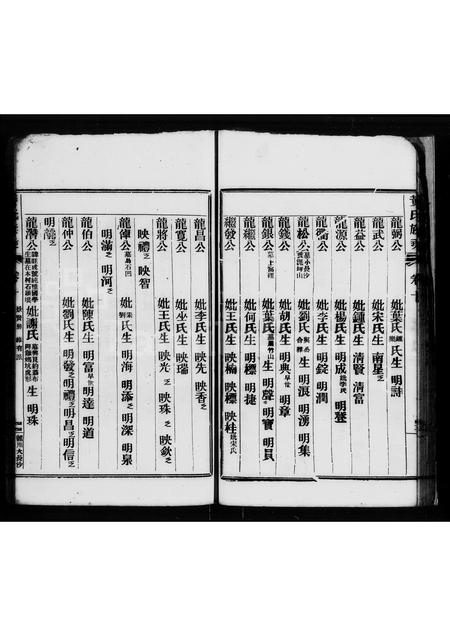 葉氏族
龍弼公 妣葉氏 鍾 生 明詩
龍武公 妣宋氏生 南星之
龍益公 妣鍾氏生 清賢 清富
龍源公 妣楊氏生 明成 妣李氏 明聲
妣李氏生 明錠 明潤
龍松公 妣劉氏 生 明浪 明湧 明集
龍錢公 妣胡氏生 明典早世 明章
龍銀公 妣葉氏 生 明聲 明寶 明貝
龍繼公 妣何氏生 明標 明捷
繼發公 妣王氏生 映楠 映標 映桂妣宋氏
龍昌公 妣李氏生 映先 映香
龍寬公 妣坐氏生 映瑞
龍將公 妣王氏生 映光之 映珠之 映欽之
映禮之 映智
龍偉公 妣 宋 劉 氏生 明海 明添之 明深 明泉
明滿之 明河之
龍伯公 妣陳氏生 明富早世 明達 明道
龍仲公 妣劉氏生 明發之 明禮之 明昌之 明信之
明
龍潛公 妣謝氏 生 明珠
大長沙